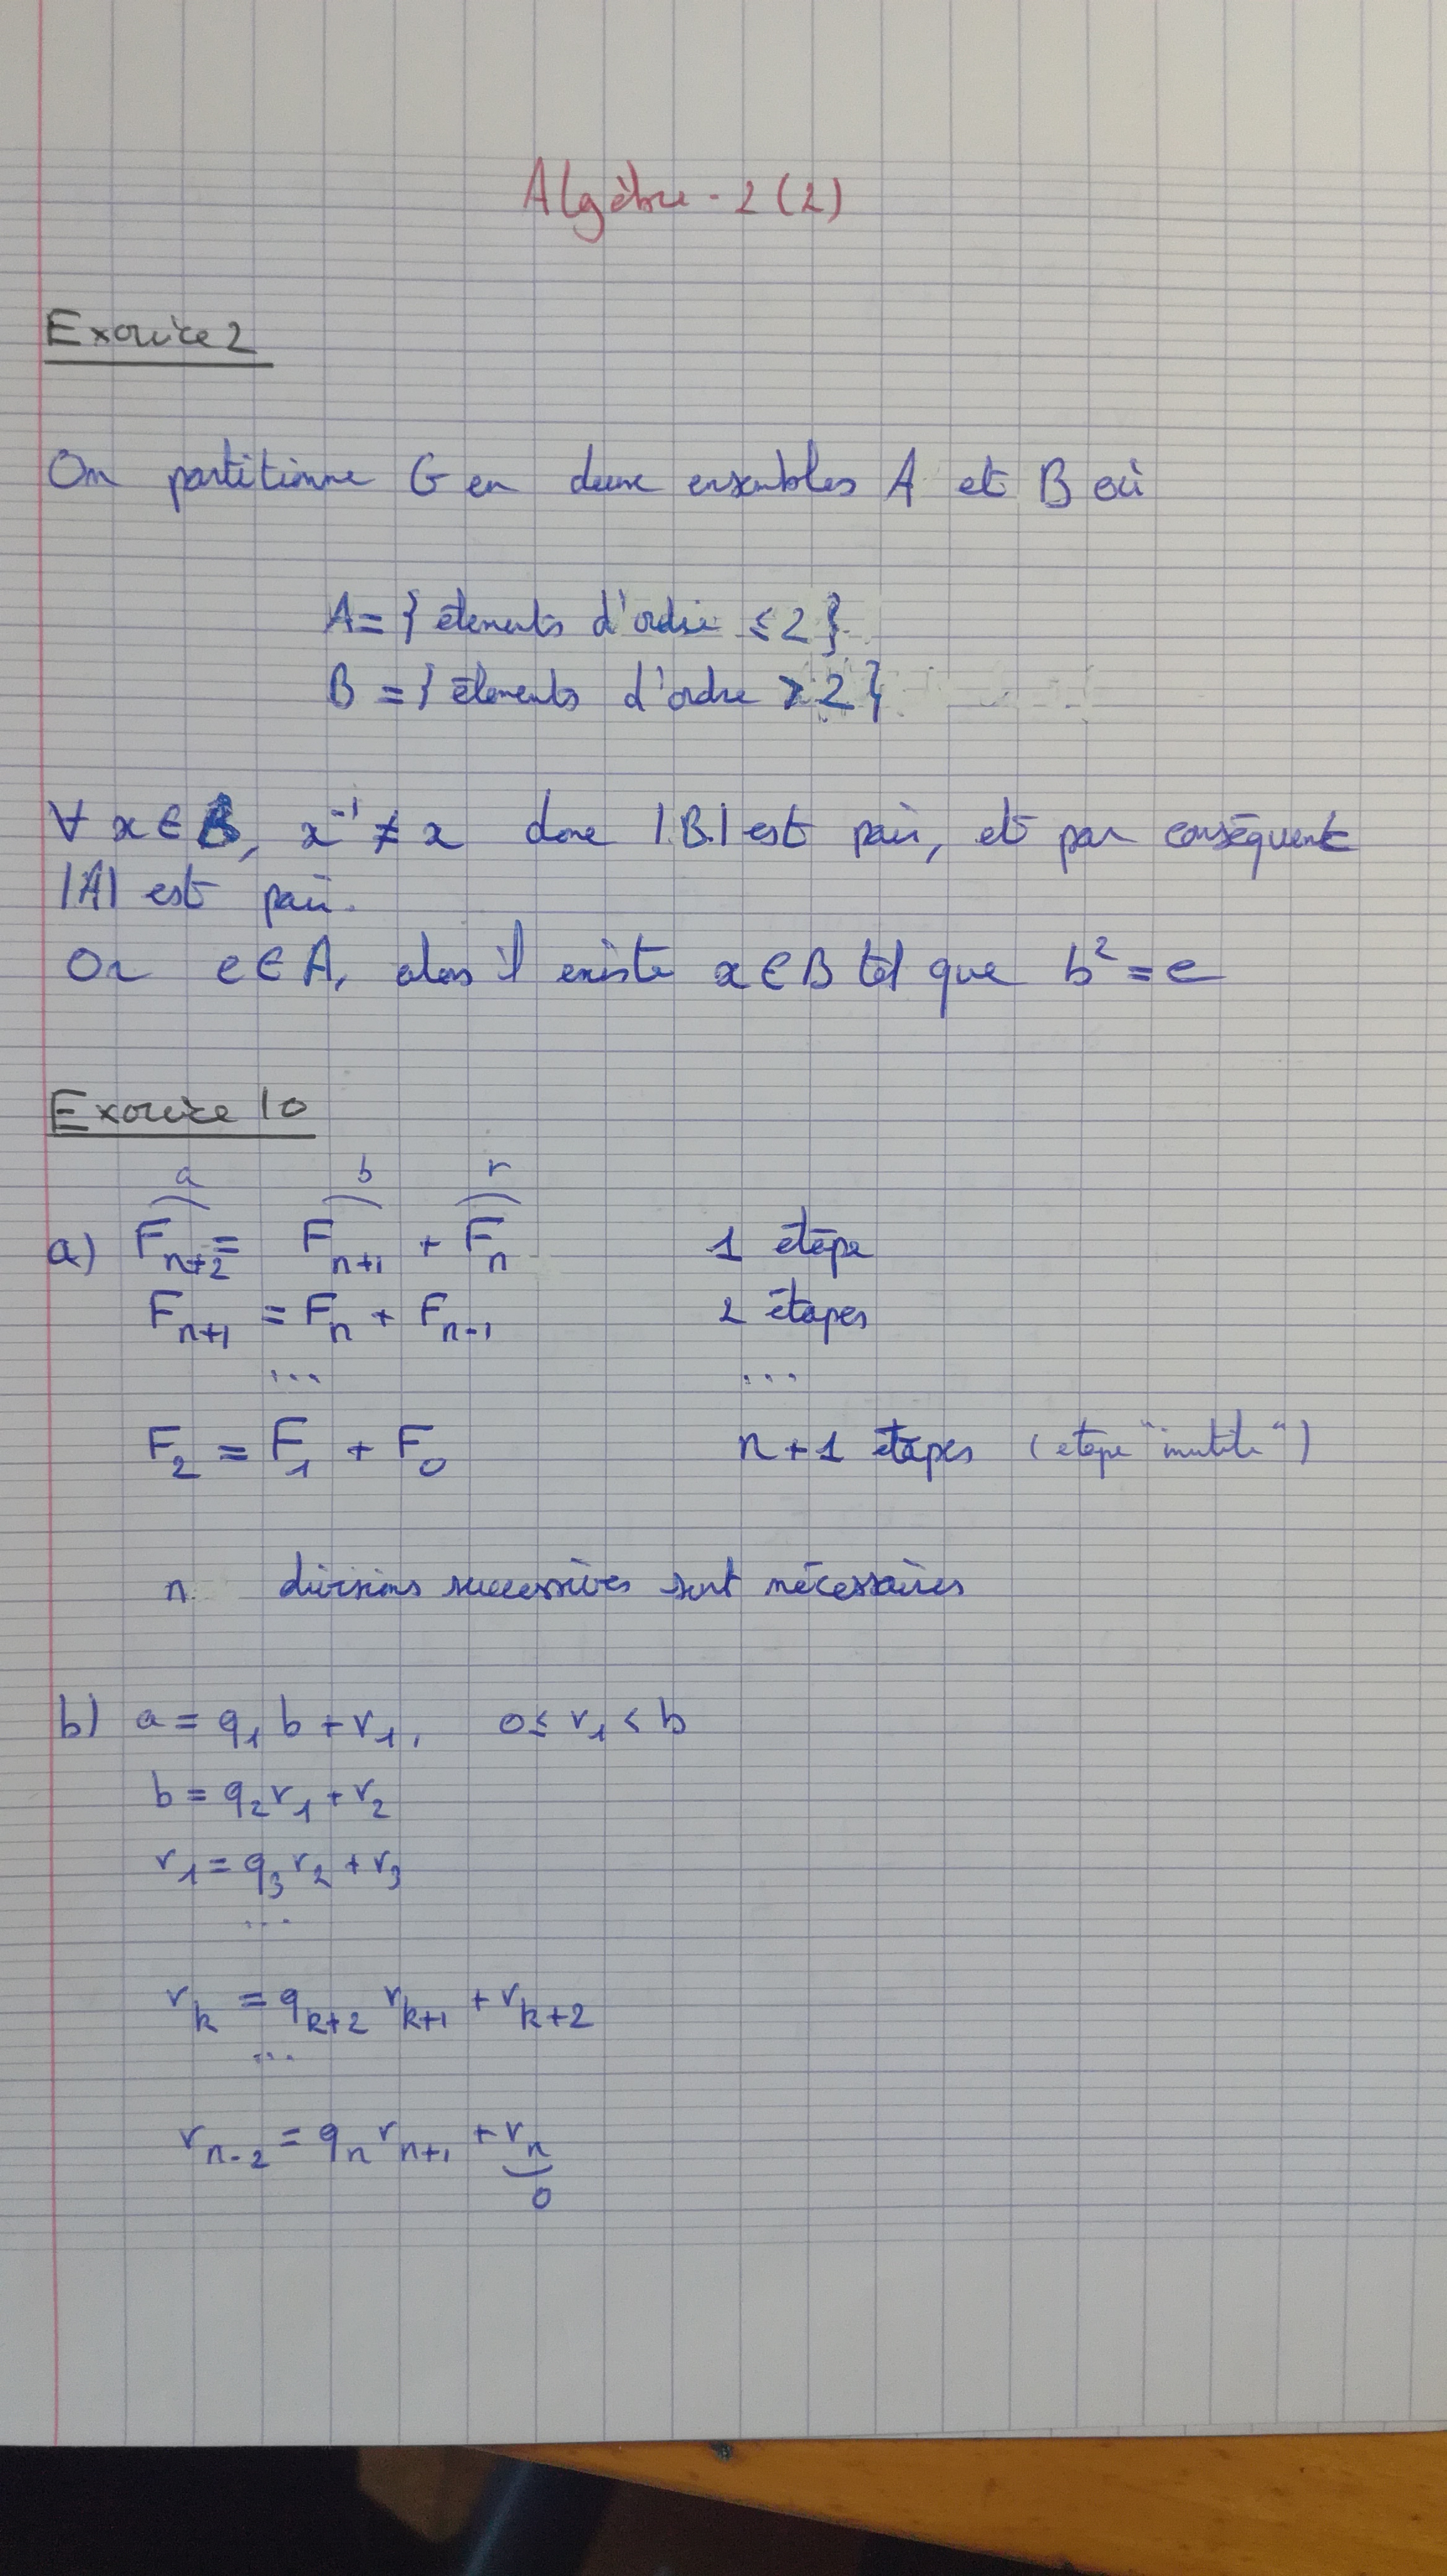 Algèbre - 2 (2)
Exercice 2
On partitionne G en deux ensembles A et B où
A = { élements d'ordre ≤ 2 }
B = { élements d'ordre > 2 }
∀ x ∈ B, x⁻¹ ≠ x donc |B| est pair, et par conséquent
|A| est pair.
Or e ∈ A, alors il existe x ∈ B tel que b² = e
Exercice 10
a b r
a) F_{n+2} = F_{n+1} + F_n 1 étape
F_{n+1} = F_n + F_{n-1} 2 étapes
... ...
F_2 = F_1 + F_0 n + 1 étapes (étape "inutile")
n divisions successives sont nécessaires
b) a = q_1 b + r_1, 0 ≤ r_1 < b
b = q_2 r_1 + r_2
r_1 = q_3 r_2 + r_3
...
r_k = q_{k+2} r_{k+1} + r_{k+2}
...
r_{n-2} = q_n r_{n+1} + r_n
0